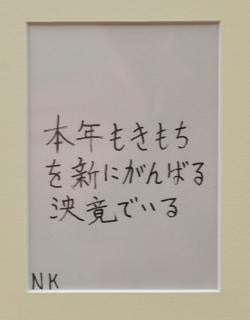 本年もきもち
を新にがんばる
決竟でいる
NK